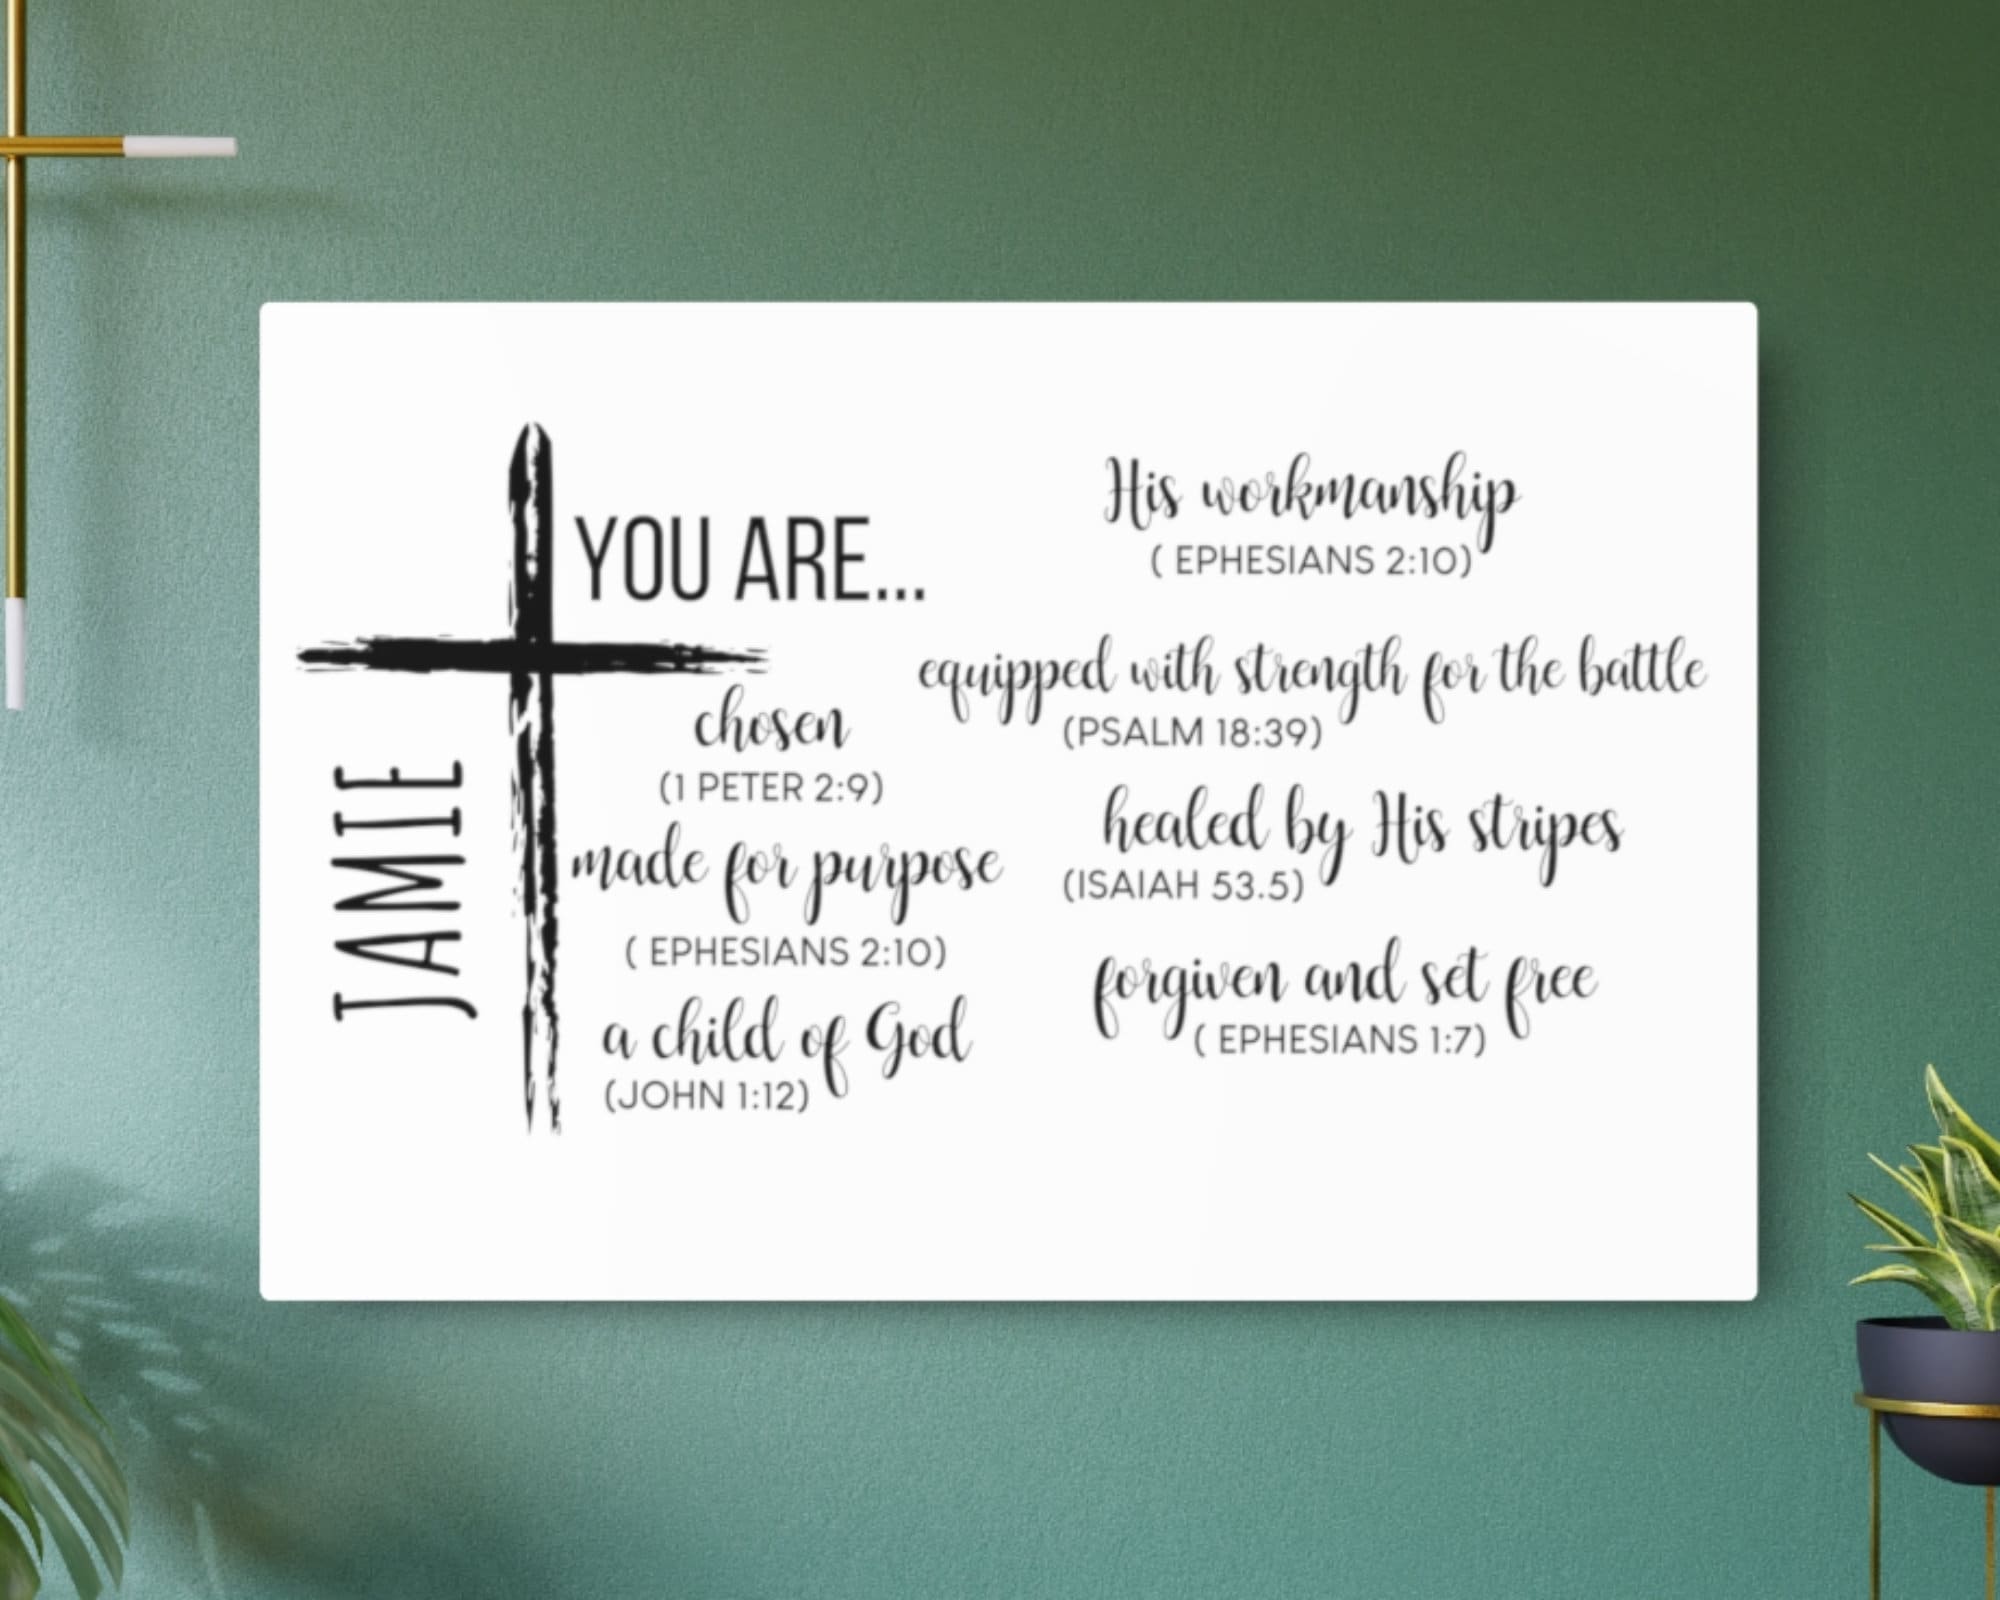 JAMIE
YOU ARE...
chosen
(1 PETER 2:9)
made for purpose
( EPHESIANS 2:10)
a child of God
(JOHN 1:12)
His workmanship
( EPHESIANS 2:10)
equipped with strength for the battle
(PSALM 18:39)
healed by His stripes
(ISAIAH 53.5)
forgiven and set free
( EPHESIANS 1:7)